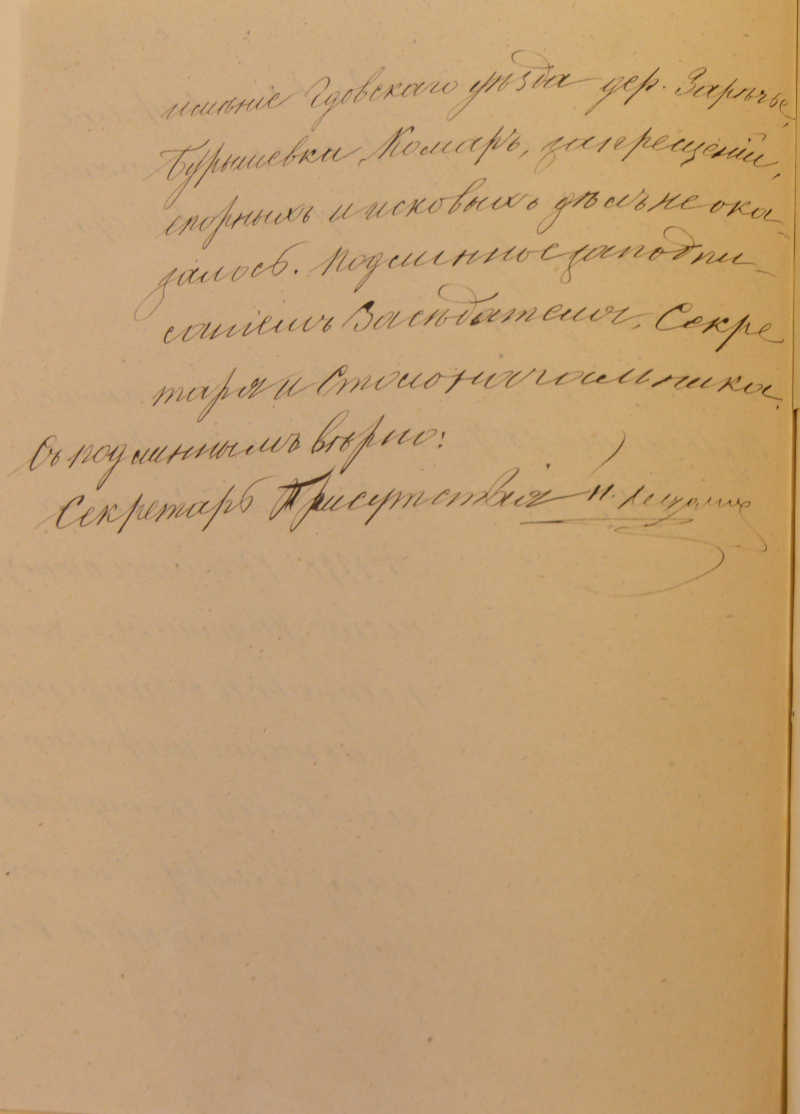 имѣніе Гдовскаго уѣзда дер. Зарѣчье,
Бурышевки, Комаръ, запрещеній,
спорныхъ и исковыхъ дѣлъ не ока-
залось. Подлинное за подпи-
саніемъ Засѣдателя, Секре
таря и Столоначальника.
Съ подлиннымъ вѣрно:
Секретарь Присутствія Н.